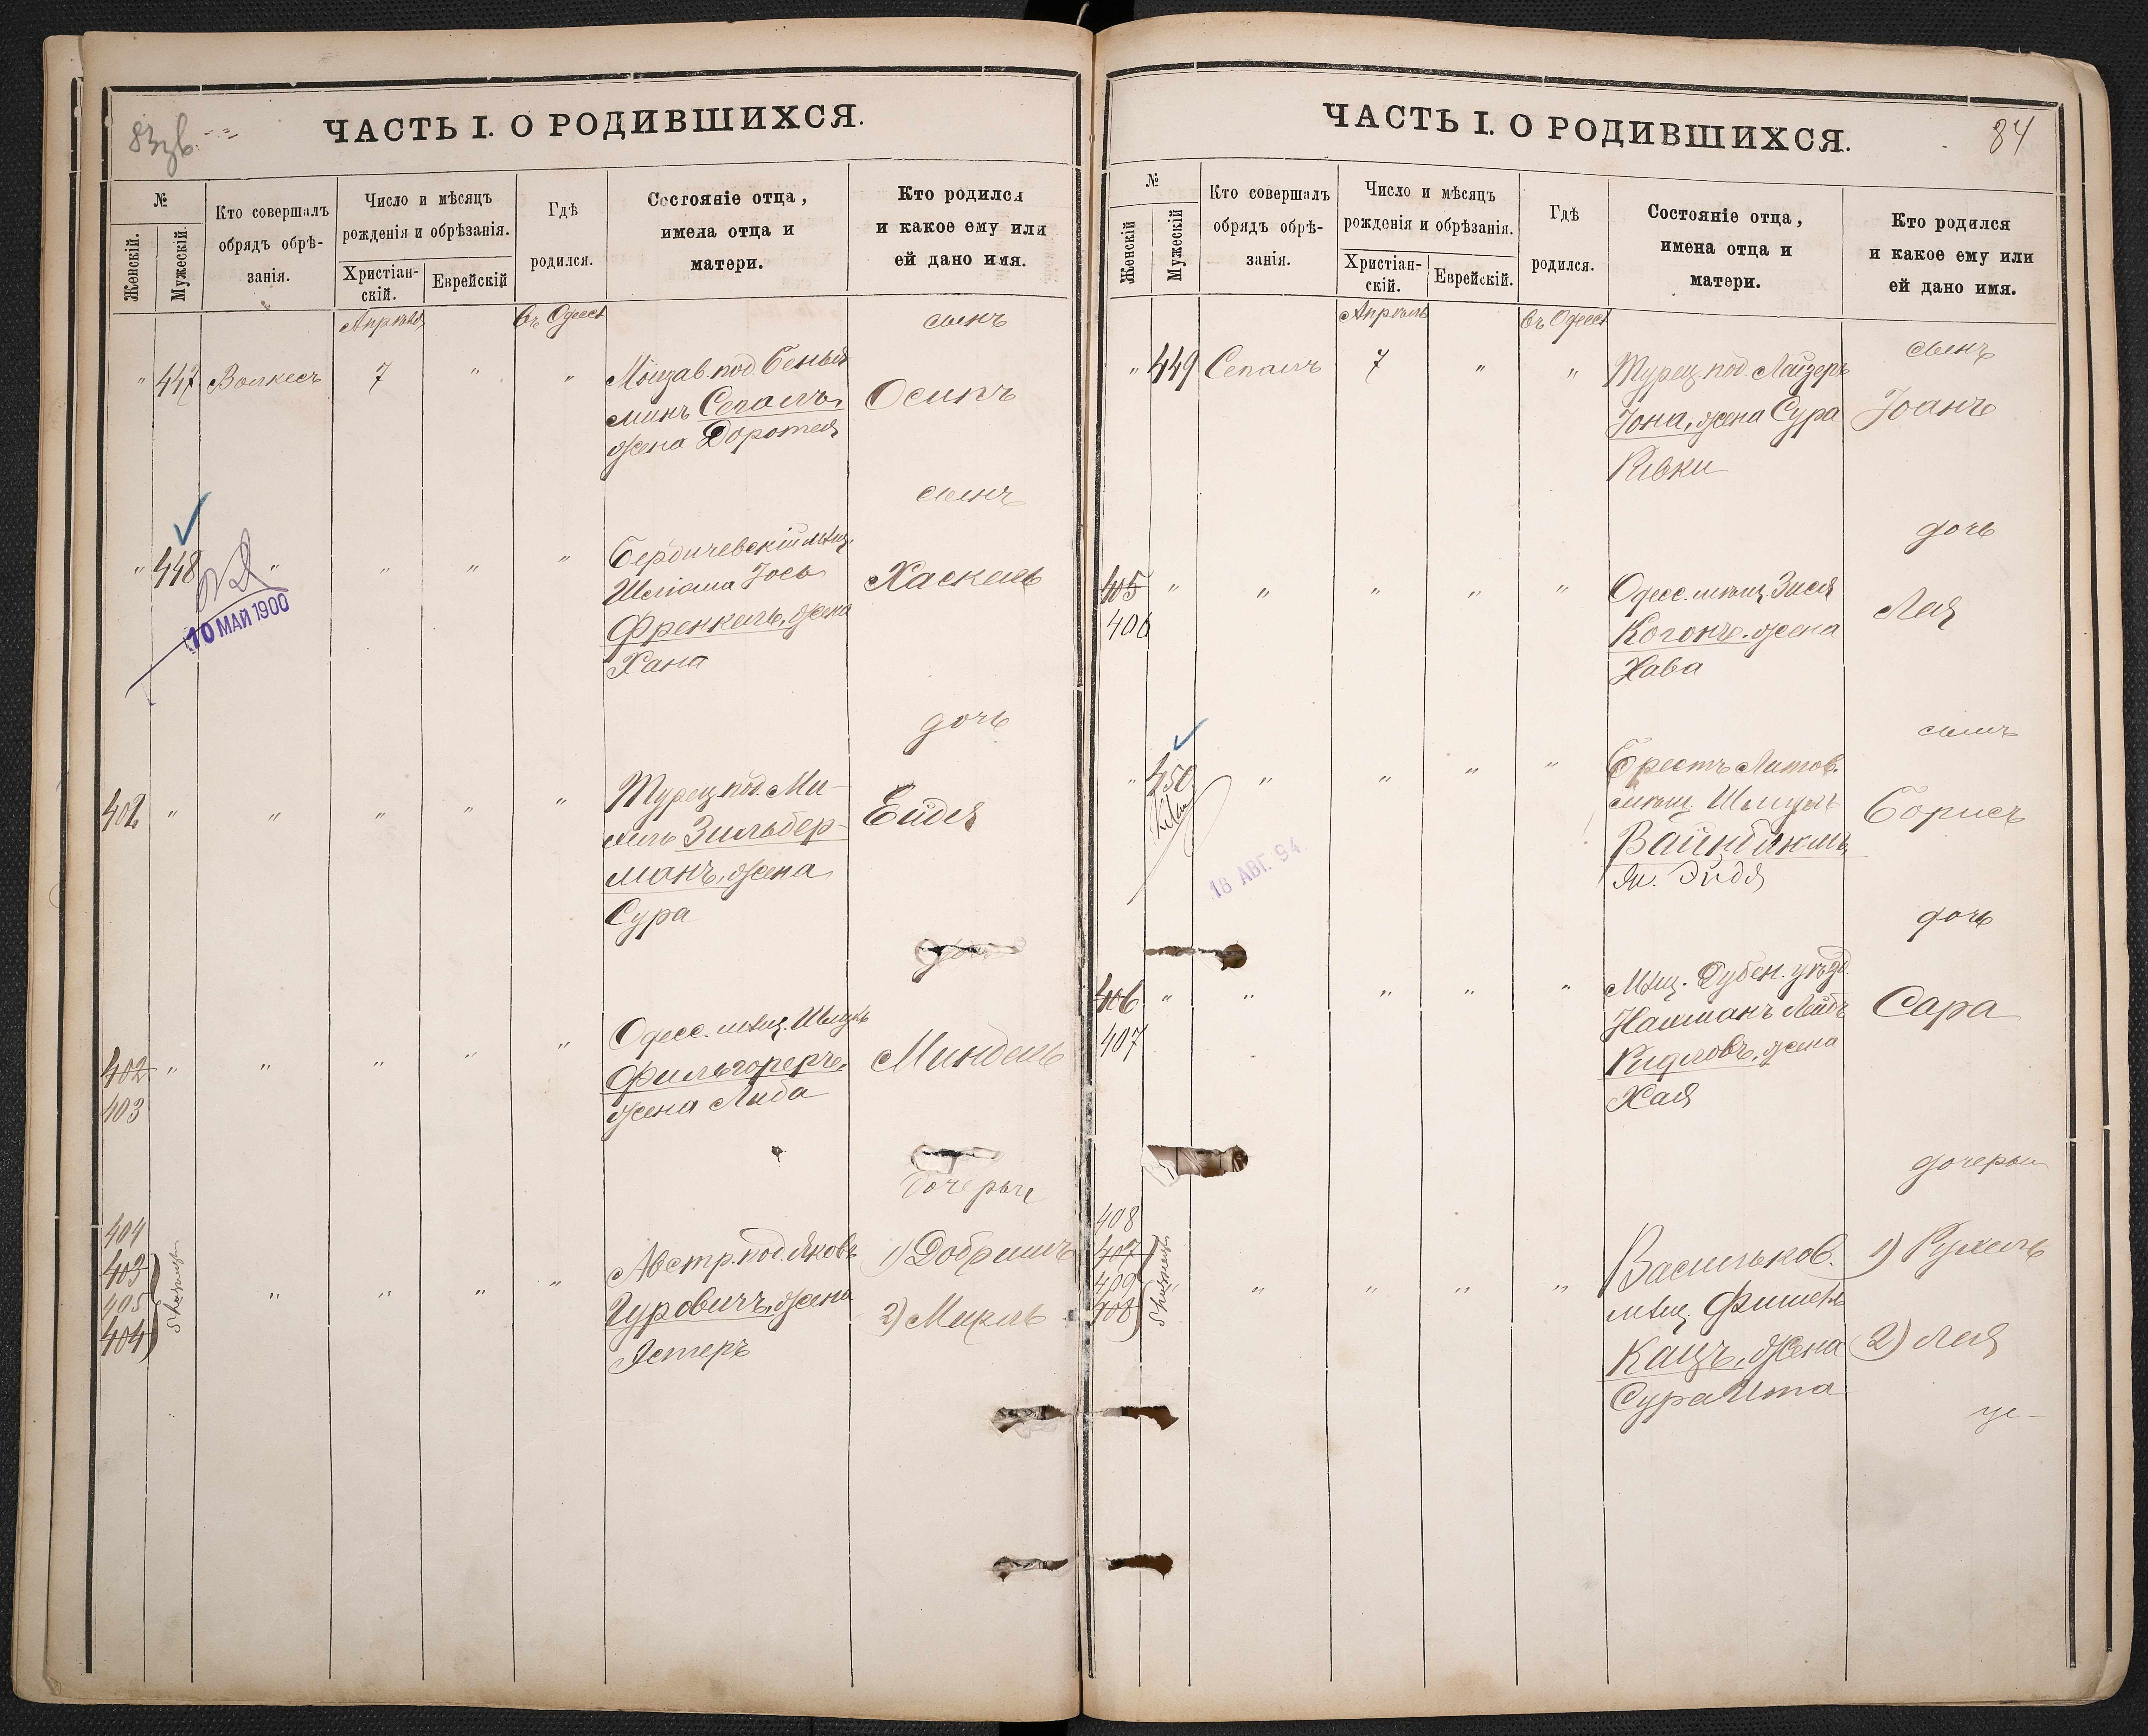 83зв.
ЧАСТЬ I. О РОДИВШИХСЯ.
№
Женскій.
Мужескій.
Кто совершалъ
обрядъ обрѣ-
занія.
Число и мѣсяцъ
рожденія и обрѣзанія.
Христіан-
скій.
Еврейскій
Гдѣ
родился.
Состояніе отца,
имена отца и
матери.
Кто родился
и какое ему или
ей дано имя.
Апрѣль
въ Одессѣ
сынъ
" 447 7 " "
под. Бенья
минъ Сегалъ,
жена Доротея
Осипъ
сынъ
" 448 " " " "
Бердичевскій мѣщ.
Шліома Іось
Френкель, жена
Хана
Хаскель
10 МАЙ 1900
дочь
402 " " " " "
Турец. под. Ми-
Зильбер-
манъ, жена
Сура
Ейдя
дочь
402 " " " " "
403
Одесс. мѣщ. Шмуль
жена Либа
Миндель
дочеры
404
403
405
404
" " " "
Австр. под. Яковъ
Гуровичъ, жена
Эстеръ
1) Добришъ
2) Мирль
ЧАСТЬ I. О РОДИВШИХСЯ.
84
№
Женскій
Мужескій
Кто совершалъ
обрядъ обрѣ-
занія.
Число и мѣсяцъ
рожденія и обрѣзанія.
Христіан-
скій.
Еврейскій.
Гдѣ
родился.
Состояніе отца,
имена отца и
матери.
Кто родился
и какое ему или
ей дано имя.
Апрѣль
въ Одессѣ
сынъ
" 449 Сегалъ 7 " "
Турец. под. Лайзеръ
Іона, жена Сура
Ривки
Іоанъ
дочь
405 " " " " "
406
Одесс. мѣщ. Зися
Когонъ, жена
Хава
Лея
сынъ
" 450 " " " "
Брестъ Литов.
мѣщ. Шмуль
ж. Эйдя
Борисъ
18 АВГ. 94.
дочь
406 " " " " "
407
Мѣщ. Дубен. уѣзд.
Нахманъ Лейбъ
жена
Хая
Сара
дочеры
408
407
409
408
" " " "
Васильков.
мѣщ. Фишель
Кацъ, жена
Сура Ита
1) Рухель
2) Лея